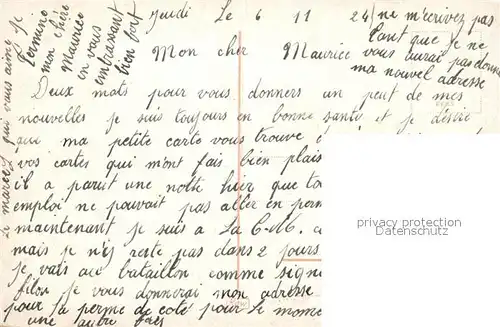 Jeudi Le 6 11 24
Mon cher Maurice
Deux mots pour vous donners un peut de mes
nouvelles je suis toujours en bonne santé et je désire
que ma petite carte vous trouve
vos cartes qui m'ont fais bien plais
il a parut une notte hier que to
emploi ne pouvait pas aller en perm
maintenant je suis a La C.M.
mais je n'y reste pas dans 2 jours
je vais au bataillon comme signe
filou je vous donnerai mon adresse
pour la perme de coté pour le mome
une autre fois
ne m'ecrivez pas
tant que je ne
vous aurai pas donne
ma nouvel adresse
Je
termine
mon chére
Maurice
en vous
embrassant
bien fort
Le marcel qui vous aime
privacy protection
www.akpool.de